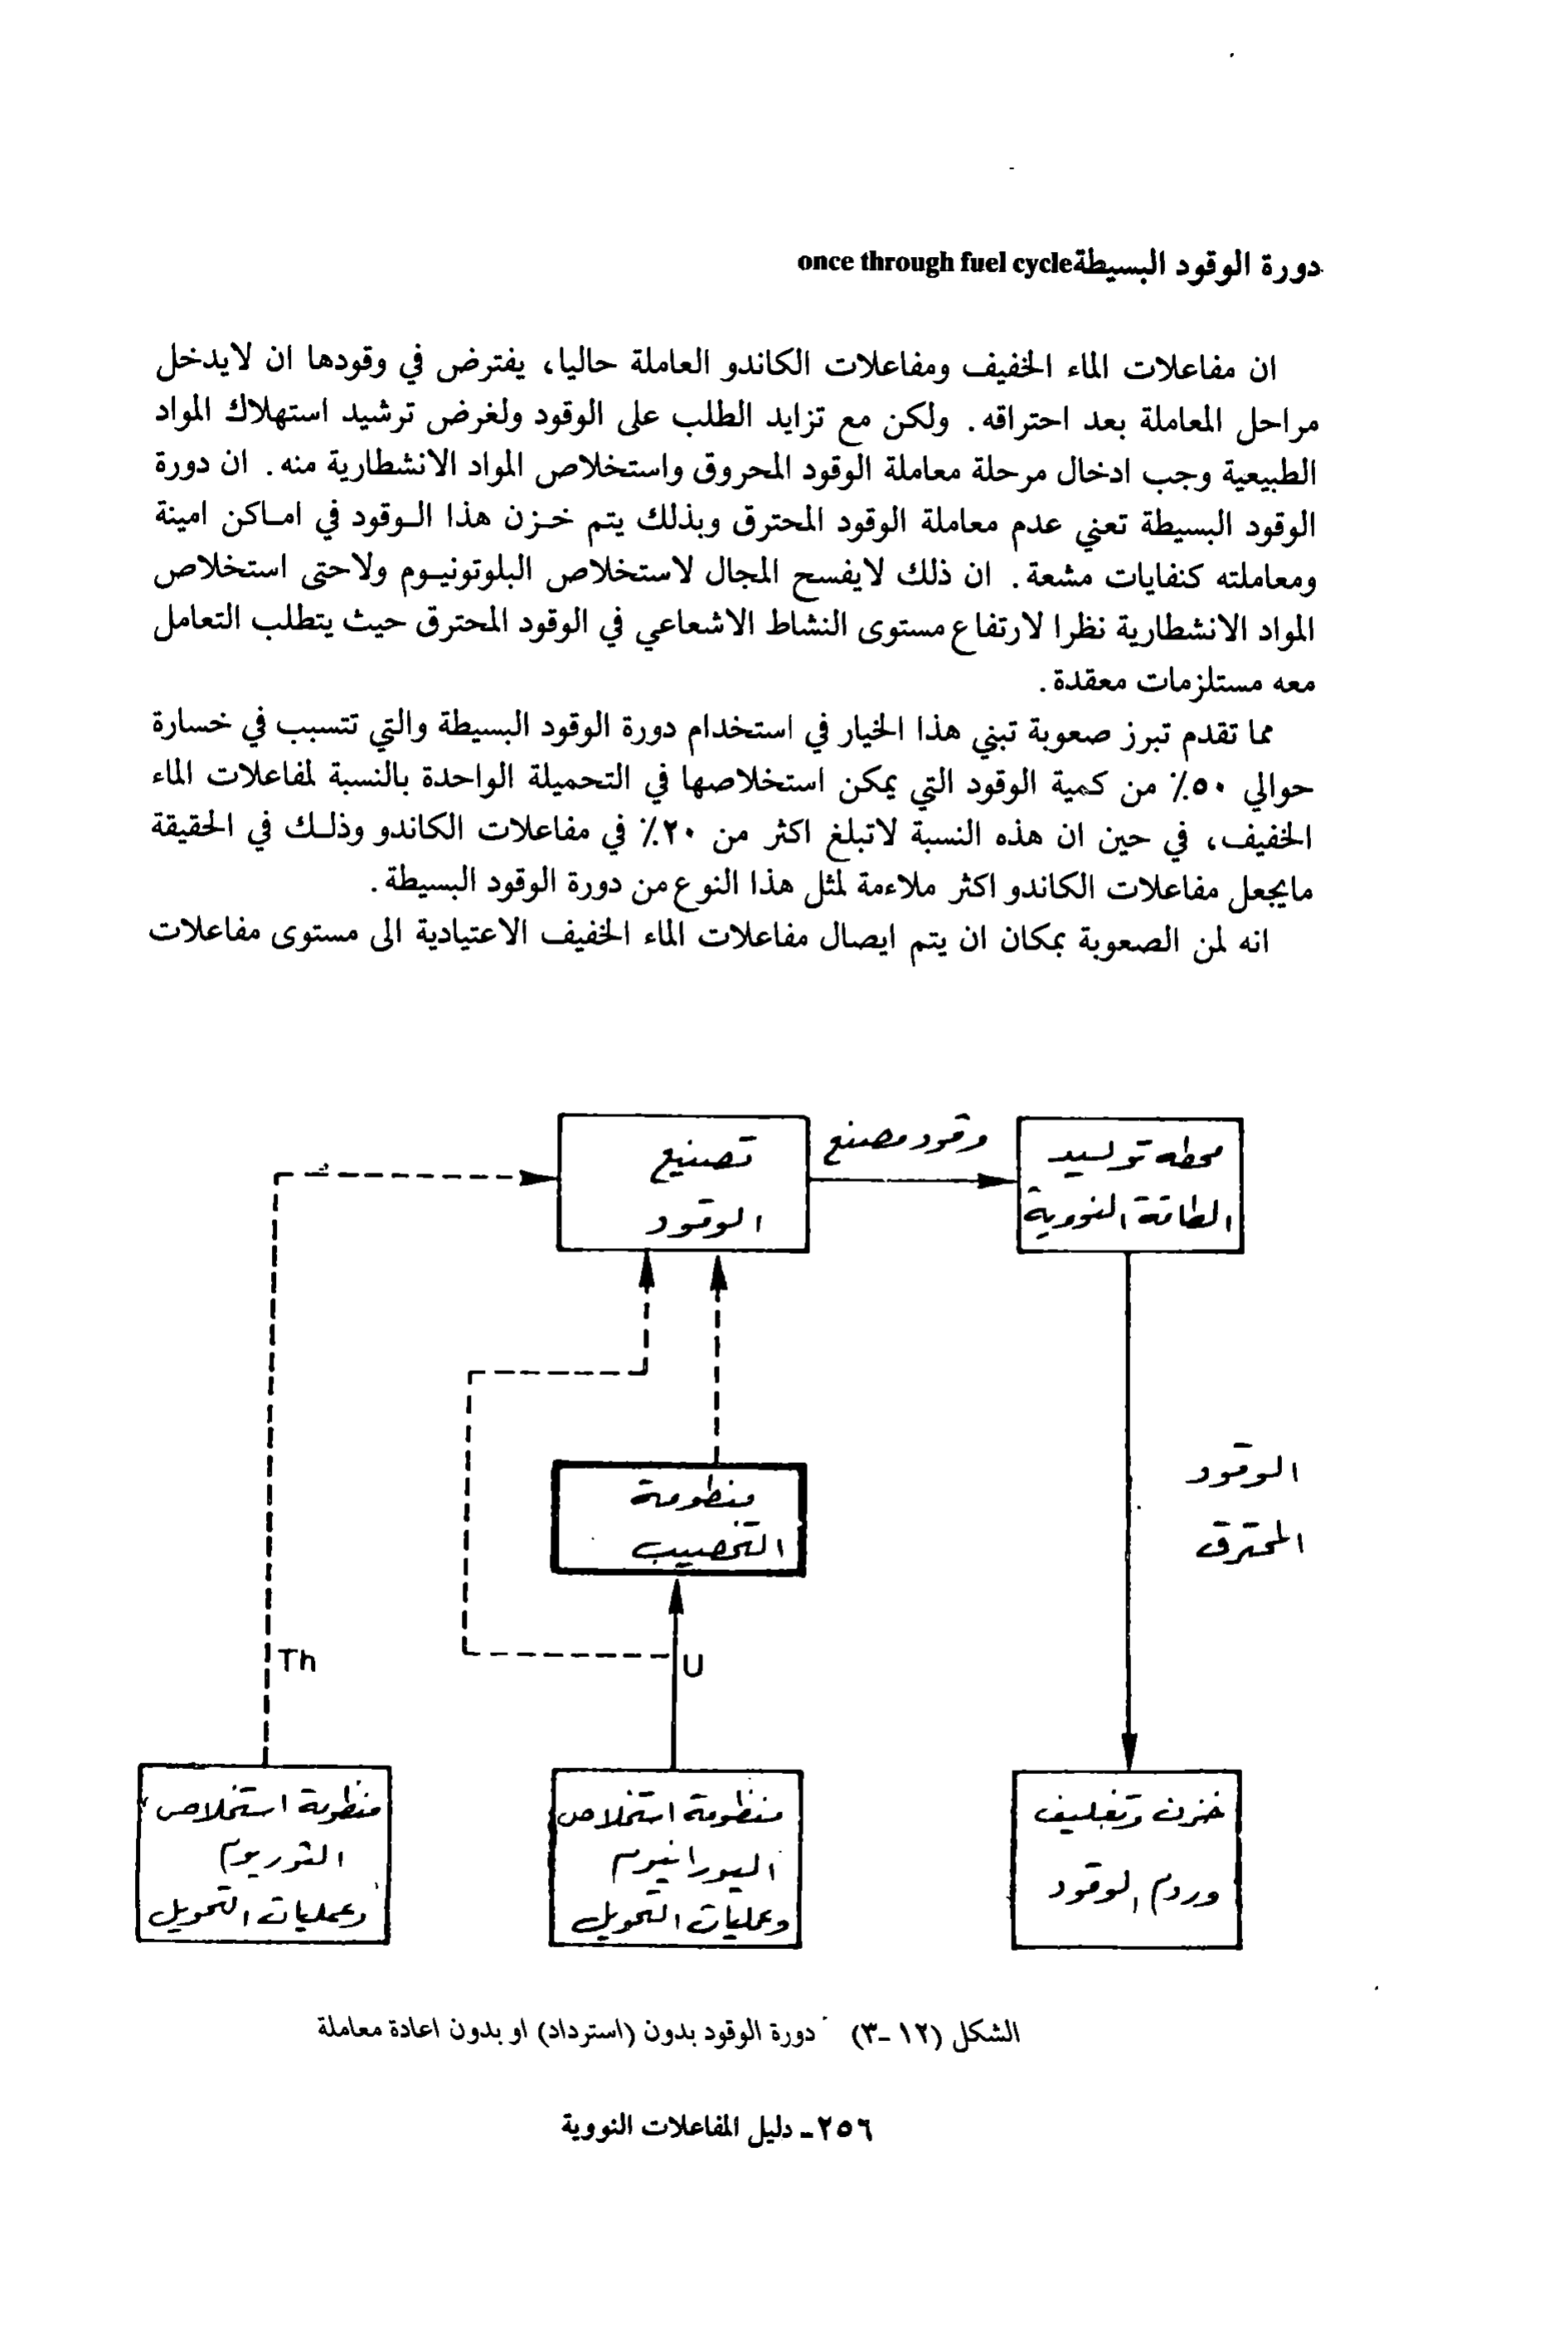 دورة الوقود البسيطة once through fuel cycle
ان مفاعلات الماء الخفيف ومفاعلات الكاندو العاملة حاليا، يفترض في وقودها ان لايدخل
مراحل المعاملة بعد احتراقه. ولكن مع تزايد الطلب على الوقود ولغرض ترشيد استهلاك المواد
الطبيعية وجب ادخال مرحلة معاملة الوقود المحروق واستخلاص المواد الانشطارية منه. ان دورة
الوقود البسيطة تعني عدم معاملة الوقود المحترق وبذلك يتم خزن هذا الوقود في اماكن امينة
ومعاملته كنفايات مشعة. ان ذلك لايفسح المجال لاستخلاص البلوتونيوم ولاحتى استخلاص
المواد الانشطارية نظرا لارتفاع مستوى النشاط الاشعاعي في الوقود المحترق حيث يتطلب التعامل
معه مستلزمات معقدة.
مما تقدم تبرز صعوبة تبني هذا الخيار في استخدام دورة الوقود البسيطة والتي تتسبب في خسارة
حوالي ٥٠٪ من كمية الوقود التي يمكن استخلاصها في التحميلة الواحدة بالنسبة لمفاعلات الماء
الخفيف، في حين ان هذه النسبة لاتبلغ اكثر من ٢٠٪ في مفاعلات الكاندو وذلك في الحقيقة
مايجعل مفاعلات الكاندو اكثر ملاءمة لمثل هذا النوع من دورة الوقود البسيطة.
انه لمن الصعوبة بمكان ان يتم ايصال مفاعلات الماء الخفيف الاعتيادية الى مستوى مفاعلات
محطه توليد
الطاقة النووية
وقود مصنع
تصنيع
الوقود
الوقود
المحترق
منظومة
التخصيب
U
Th
خزن وتغليف
وردم الوقود
منظومة استخلاص
اليورانيوم
وعمليات التحويل
منظومة استخلاص
الثوريوم
وعمليات التحويل
الشكل (١٢-٣) دورة الوقود بدون (استرداد) او بدون اعادة معاملة
٢٥٦- دليل المفاعلات النووية